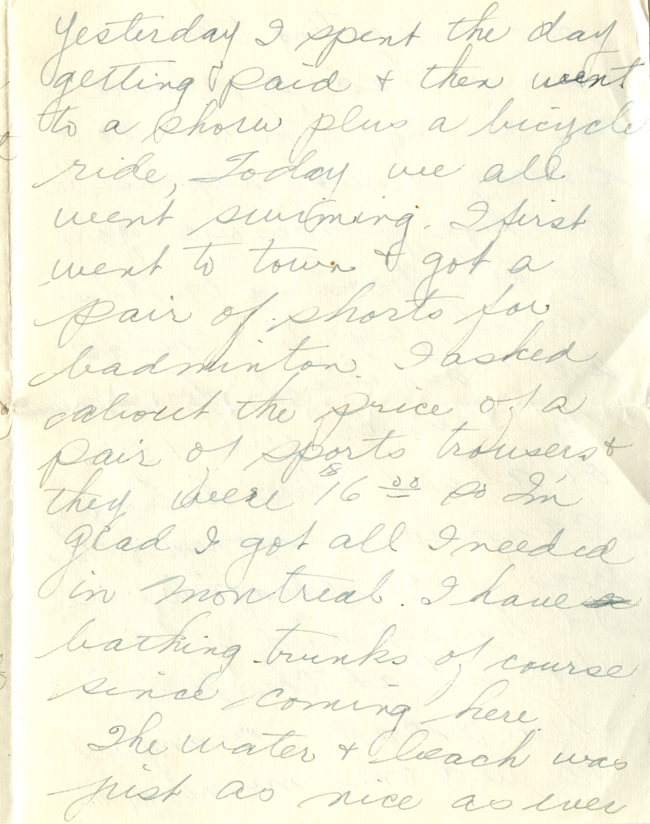 Yesterday I spent the day
getting paid & then went
to a show plus a bicycle
ride, Today we all
went swiming. I first
went to town & got a
pair of shorts for
badminton. I asked
about the price of a
pair of sports trousers &
they were $16 00 so I'm
glad I got all I needed
in Montreal. I have
bathing trunks of course
since coming here.
The water & beach was
just as nice as ever